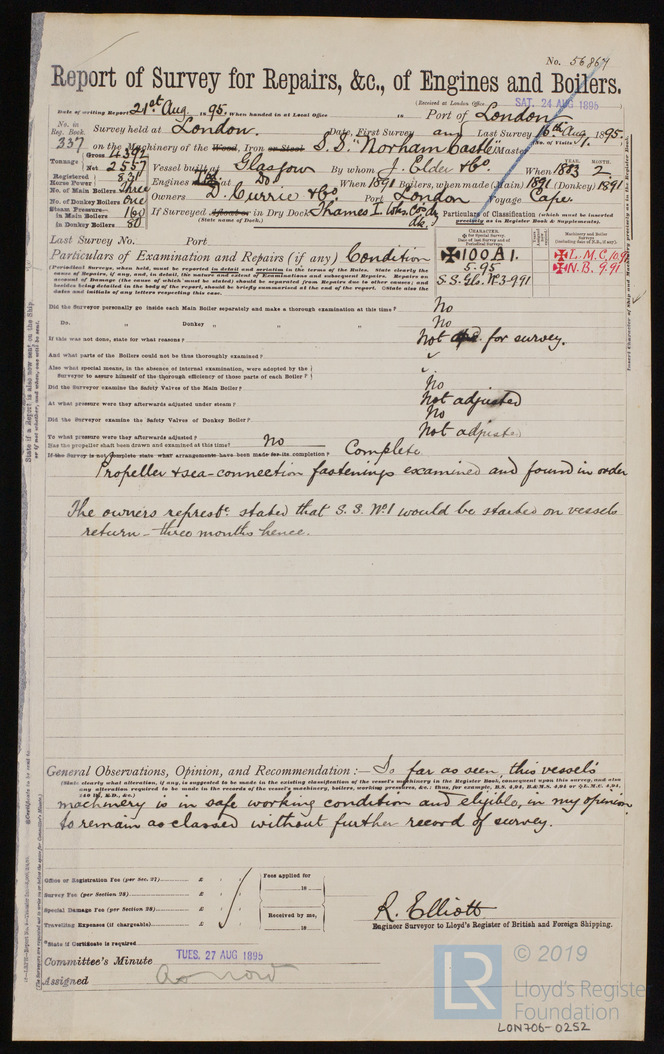 No. 56867
Report of Survey for Repairs, &c., of Engines and Boilers.
(Received at London Office SAT. 24 AUG 1895)
Date of writing Report 21st Aug 1895 When handed in at Local Office 18 Port of London
No. in Reg. Book. 337 Survey held at London. Date, First Survey and Last Survey 16th Aug. 1895.
(No. of Visits 1.)
on the Machinery of the Wood, Iron or Steel S.S. "Norham Castle" Master
Tonnage Gross 4392 Net 2557
Vessel built at Glasgow By whom J. Elder & Co. When YEAR. 1883 MONTH. 2
Registered Horse Power 331 Engines made at Do When 1891 Boilers, when made (Main) 1891 (Donkey) 1891
No. of Main Boilers Three
No. of Donkey Boilers One Owners D. Currie & Co Port London Voyage Cape.
Steam Pressure in Main Boilers 160
in Donkey Boilers 80
If Surveyed Afloat or in Dry Dock Thames I. Wks. Co. Dr. Dk.
(State name of Dock.)
Particulars of Classification (which must be inserted precisely as in Register Book & Supplements).
Last Survey No. Port
CHARACTER.
for Special Survey.
Date of last Survey and of Periodical Surveys.
Machinery and Boiler Surveys (including date of N.B., if any).
100A1.
5.95
S.S. Glo. No. 3-991
L.M.C. 10.91
N.B. 9.91
Particulars of Examination and Repairs (if any) Condition
(Periodical Surveys, when held, must be reported in detail and seriatim in the terms of the Rules. State clearly the
cause of Repairs, if any, and, in detail, the nature and extent of Examinations and subsequent Repairs. Repairs on
account of Damage (the cause of which must be stated) should be separated from Repairs due to other causes; and
besides being detailed in the body of the report, should be briefly summarised at the end of the report. State also the
dates and initials of any letters respecting this case.
Did the Surveyor personally go inside each Main Boiler separately and make a thorough examination at this time? No
Do. " Donkey " " " No
If this was not done, state for what reasons? Not opd. for survey.
And what parts of the Boilers could not be thus thoroughly examined?
Also what special means, in the absence of internal examination, were adopted by the
Surveyor to assure himself of the thorough efficiency of those parts of each Boiler?
Did the Surveyor examine the Safety Valves of the Main Boiler? No
At what pressure were they afterwards adjusted under steam? Not adjusted
Did the Surveyor examine the Safety Valves of Donkey Boiler? No
To what pressure were they afterwards adjusted? Not adjusted
Has the propeller shaft been drawn and examined at this time? No
If the Survey is not complete state what arrangements have been made for its completion? Complete
Propeller & sea-connection fastenings examined and found in order
The owners represte. stated that S.S. No1 would be started on vessels
return - three months hence.
General Observations, Opinion, and Recommendation:— So far as seen, this vessel's
(State clearly what alteration, if any, is suggested to be made in the existing classification of the vessel's machinery in the Register Book, consequent upon this survey, and also
any alteration required to be made in the records of the vessel's machinery, boilers, working pressures, &c.; thus, for example, B.S. 4,94, B.&M.S. 4,94 or L.M.C. 4,94,
140 lb., F.D., &c.)
machinery is in safe working condition and eligible, in my opinion
to remain as classed without further record of survey.
Office or Registration Fee (per Sec. 27) £ : :
Survey Fee (per Section 28) £ : :
Special Damage Fee (per Section 28) £ : :
Travelling Expenses (if chargeable) £ : :
Fees applied for
18
Received by me,
18
R. Elliott
Engineer Surveyor to Lloyd's Register of British and Foreign Shipping.
*State if Certificate is required
Committee's Minute TUES. 27 AUG 1895
Assigned As now
State if a Report is also now sent on the Ship.
or if not whether, and when, one will be sent.
Insert Character of Ship and Machinery precisely as in the Register Book.
LR
© 2019
Lloyd's Register
Foundation
LON706-0252